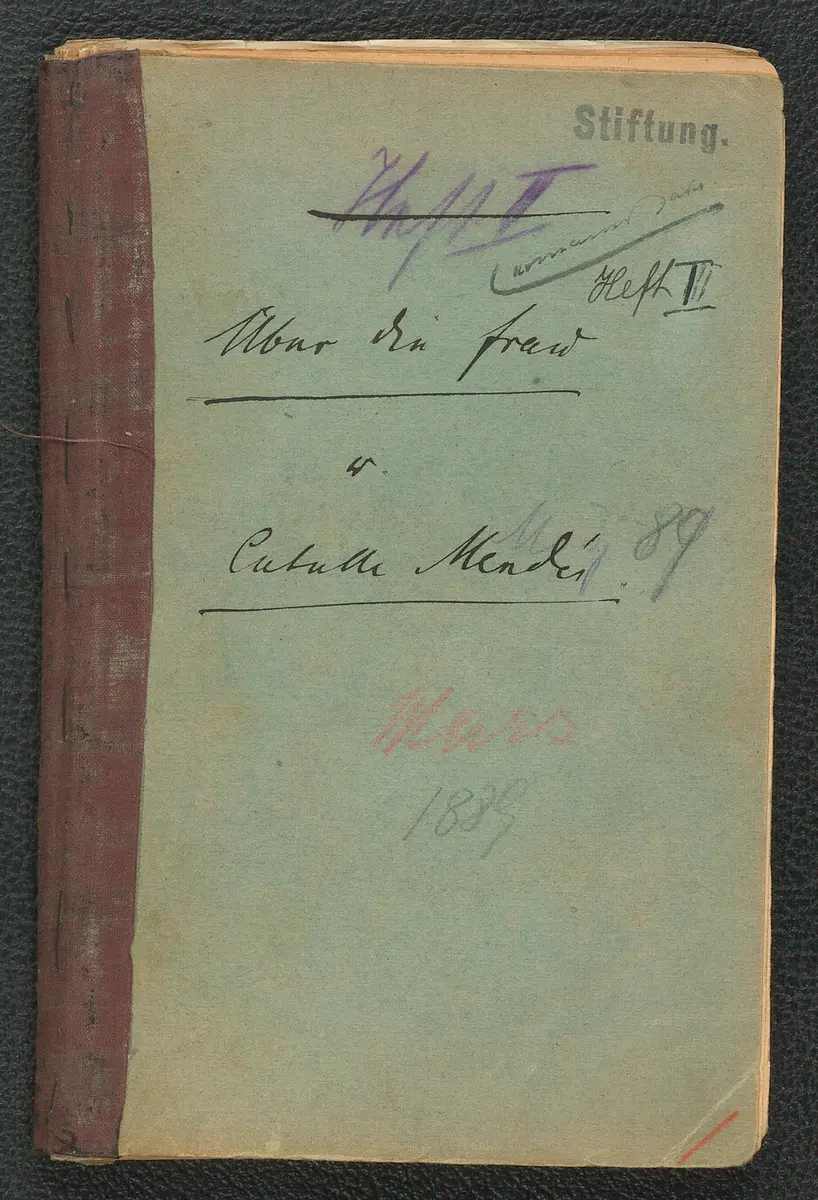 Stiftung.
Heft I
Heft III
Über die Frau
v.
Catulle Mendès.
89
Mars
1889